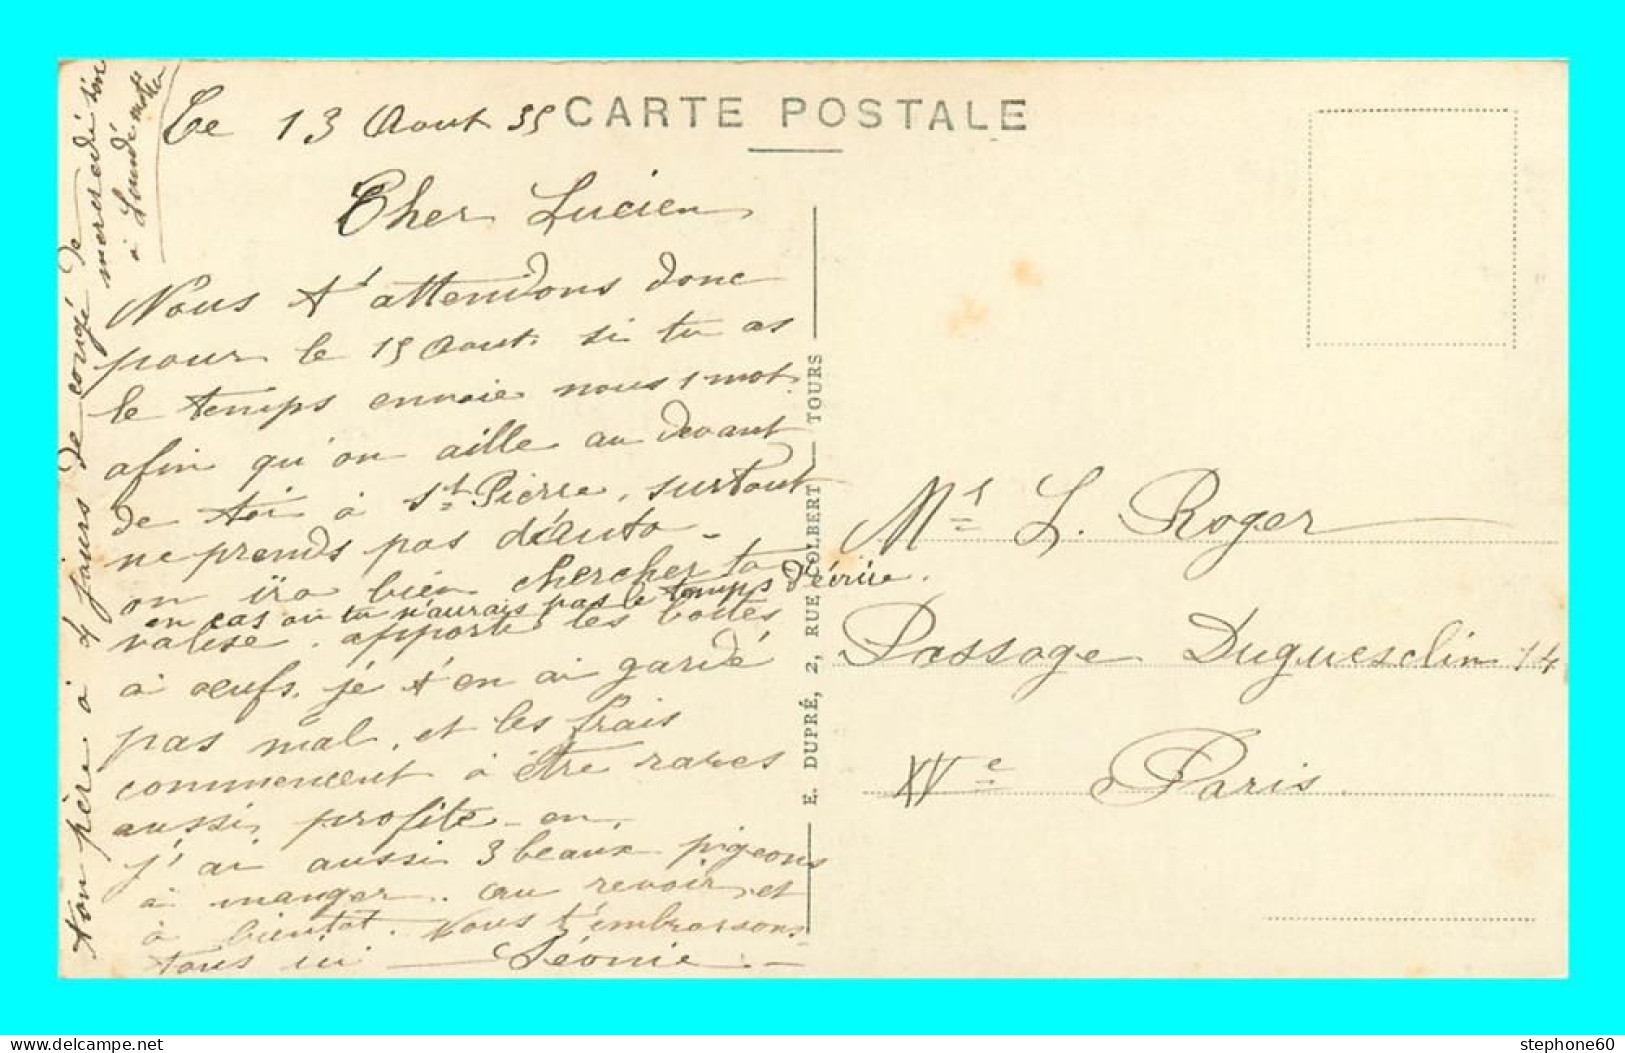 Le 13 Aout 35
CARTE POSTALE
Cher Lucien
Nous t'attendons donc
pour le 15 Aout. si tu as
le temps envoie nous 1 mot
afin qu'on aille au devant
de toi à St Pierre, surtout
ne prends pas d'auto -
on ira bien chercher ta
en cas où tu n'aurais pas le temps d'écrire.
valise. apporte les boites
à oeufs. je t'en ai gardé
pas mal, et les frais
commencent à être rares
aussi profite-en.
j'ai aussi 3 beaux pigeons
à manger. au revoir et
à bientot. Nous t'embrassons
tous ici — Léonie -
ton père à 4 jours de congé de
mercredi
à Lundi
E. DUPRÉ, 2, RUE COLBERT — TOURS
Mr L. Roger
Passage Duguesclin 14
XVe Paris.
stephone60